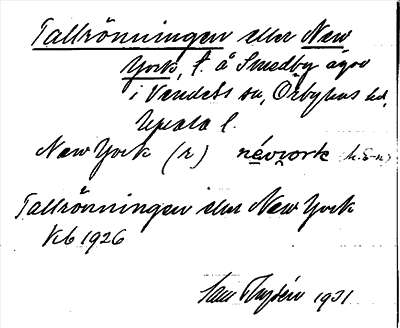 Tallrönningen eller New
York, t. å Smedby ägor
i Vendels sn, Örbyhus hd,
Uppsala l.
New York (r) névyork
Tallrönningen eller New York
Kb 1926
1931